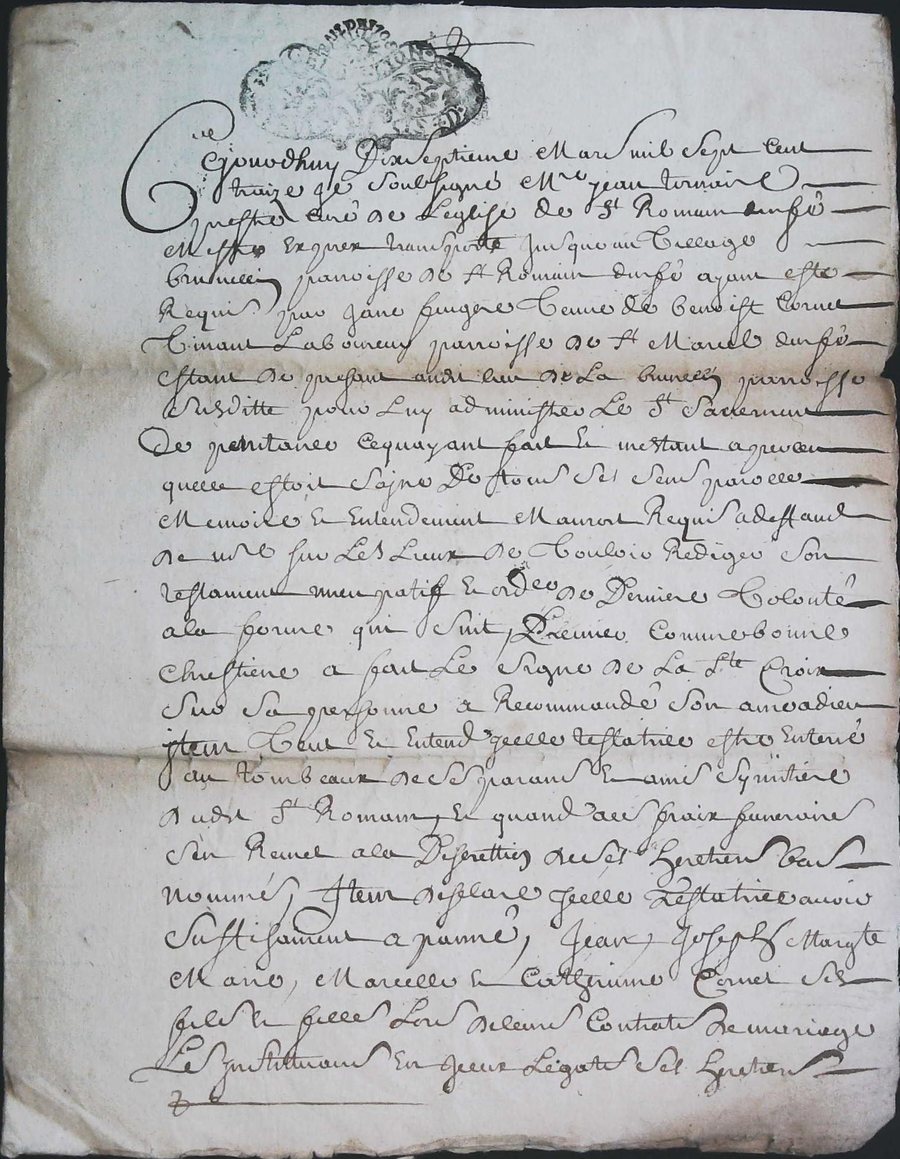 GENERALITE LYON
Cejourdhuy Dixseptieme Mars mil Sept Cent
traize je Soubsigné Mre jean
prestre Curé de Leglise de St Romain durfé
me suis Exprez transporté jusque au Village
paroisse de St Romain durfé ayant este
Requis par jane fougere veuve de benoist Cornet
vivant Laboureur parroisse de St Marcel durfé
estant de presant audit lieu de La parroisse
Susditte pour Luy administrer Le St Sacrement
de penitance Ce quayant fait Et mestant aperceu
quelle estoit Saine De tous Ses Sens parolle
Memoire Et Entendement Mauroit Requis
de sur Les Lieux de vouloir Rediger Son
testament nuncupatif Et ordre de Derniere volonté
a la forme qui Suit, Premier Comme bonne
Chrestiene a fait Le Signe de La Ste Croix
Sur Sa personne a Recommandé Son ame a dieu
jtem veut Et Entend jcelle testatrice estre Enterré
au tombeaux de Ses parans Et amis Symitiere
dudit St Romain, Et quand a ces fraix funeraires
Sen Remet a la Discrettion de Ses heretiers bas
nommés, Jtem desclare jcelle testatrice avoir
Suffisament apanné, Jean, Joseph, Margte
Marie, Marcelle Et Catherinne Cornet Ses
fils Et filles Lors de leurs Contrats de mariage
Les jnstituans En jceux Legats Ses heretiers